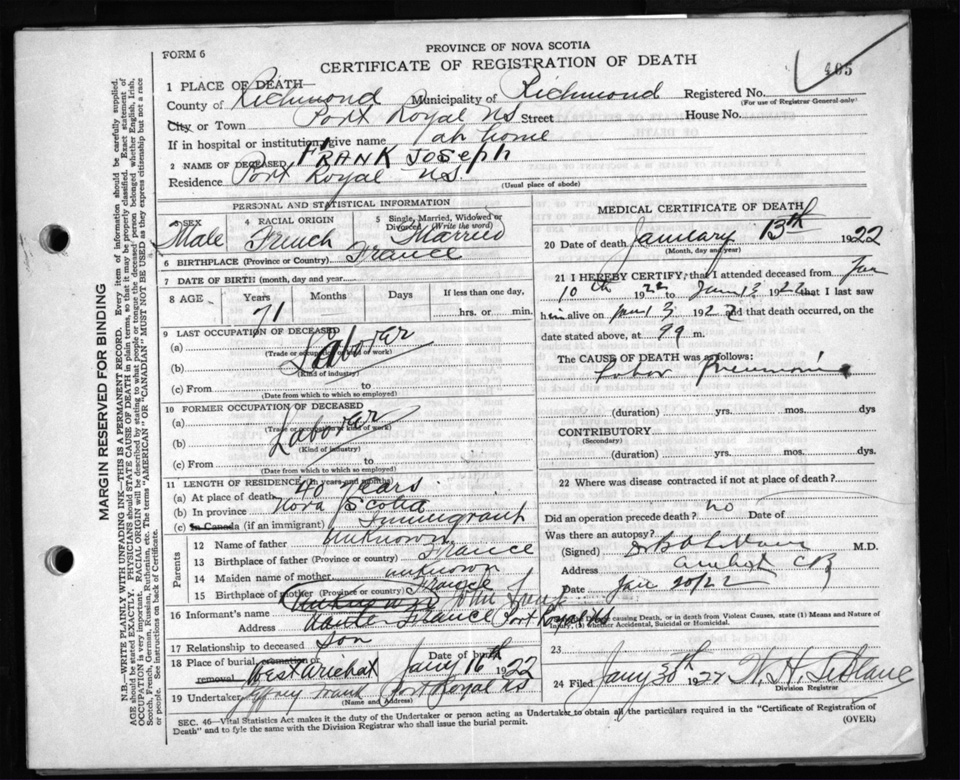 PROVINCE OF NOVA SCOTIA
FORM 6
CERTIFICATE OF REGISTRATION OF DEATH
405
1 PLACE OF DEATH—
County of Richmond Municipality of Richmond Registered No.
(For use of Registrar General only)
City or Town Port Royal NS Street House No.
If in hospital or institution, give name at home
2 NAME OF DECEASED FRANK JOSEPH
Residence Port Royal NS.
(Usual place of abode)
PERSONAL AND STATISTICAL INFORMATION
3 SEX Male
4 RACIAL ORIGIN French
5 Single, Married, Widowed or Divorced (Write the word) Married
6 BIRTHPLACE (Province or Country) France
7 DATE OF BIRTH (month, day and year)
8 AGE Years 71 Months Days If less than one day, hrs. or min.
9 LAST OCCUPATION OF DECEASED
(a) Laborer
(Trade or occupation or kind of work)
(b)
(Kind of industry)
(c) From to
(Date from which to which so employed)
10 FORMER OCCUPATION OF DECEASED
(a) Laborer
(Trade or occupation or kind of work)
(b)
(Kind of industry)
(c) From to
(Date from which to which so employed)
11 LENGTH OF RESIDENCE (in years and months)
(a) At place of death 40 years
(b) In province Nova Scotia
(c) In Canada (if an immigrant) Immigrant
Parents
12 Name of father unknown
13 Birthplace of father (Province or country) France
14 Maiden name of mother unknown
15 Birthplace of mother (Province or country) France
16 Informant's name John
Address Port Royal NS
17 Relationship to deceased Son
18 Place of burial, cremation or removal West Arichat Date of burial Jany 16th 1922
19 Undertaker Frank Port Royal NS
(Name and Address)
MEDICAL CERTIFICATE OF DEATH
20 Date of death January 13th 1922
(Month, day and year)
21 I HEREBY CERTIFY, that I attended deceased from Jan
10th 1922 to Jan 13 1922 that I last saw
him alive on Jan 13 1922 and that death occurred, on
date stated above, at m.
The CAUSE OF DEATH was as follows:
Lobar Pneumonia
(duration) yrs. mos. dys
CONTRIBUTORY
(Secondary)
(duration) yrs. mos. dys.
22 Where was disease contracted if not at place of death?
Did an operation precede death? no Date of
Was there an autopsy?
(Signed) M.D.
Address Arichat CB
Date Jan 20/22
causing Death, or in death from Violent Causes, state (1) Means and Nature of
Injury, (2) whether Accidental, Suicidal or Homicidal.
23
24 Filed Jany 30th 1922
Division Registrar
SEC. 46—Vital Statistics Act makes it the duty of the Undertaker or person acting as Undertaker to obtain all the particulars required in the "Certificate of Registration of
Death" and to fyle the same with the Division Registrar who shall issue the burial permit.
(OVER)
MARGIN RESERVED FOR BINDING
N.B.—WRITE PLAINLY WITH UNFADING INK—THIS IS A PERMANENT RECORD. Every item of information should be carefully supplied.
AGE should be stated EXACTLY. PHYSICIANS should STATE CAUSE OF DEATH in plain terms, so that it may be properly classified. Exact statement of
OCCUPATION is very important. RACIAL ORIGIN will be described by stating to what people or tongue the deceased person belonged whether English, Irish,
Scotch, French, German, Russian, Ruthenian, etc. The terms "AMERICAN" OR "CANADIAN" MUST NOT BE USED as they express citizenship but not a race
or people. See instructions on back of Certificate.